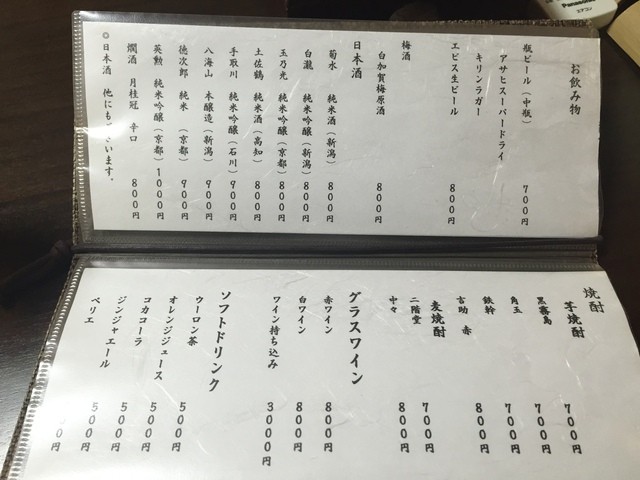 お飲み物
瓶ビール（中瓶） 700円
アサヒスーパードライ
キリンラガー
エビス生ビール 800円
梅酒
白加賀梅原酒 800円
日本酒
菊水 純米酒（新潟） 800円
白瀧 純米吟醸（新潟） 800円
玉乃光 純米吟醸（京都） 800円
土佐鶴 純米酒（高知） 800円
手取川 純米吟醸（石川） 900円
八海山 本醸造（新潟） 900円
徳次郎 純米（京都） 900円
英勲 純米吟醸（京都） 1000円
燗酒 月桂冠 辛口 800円
◎日本酒 他にもございます。
焼酎
芋焼酎
黒霧島 700円
角玉 700円
鉄幹 700円
吉助 赤 800円
麦焼酎
二階堂 700円
中々 800円
グラスワイン
赤ワイン 800円
白ワイン 800円
ワイン持ち込み 3000円
ソフトドリンク
ウーロン茶 500円
オレンジジュース 500円
コカコーラ 500円
ジンジャエール 500円
ペリエ
Panasonic
エアコン